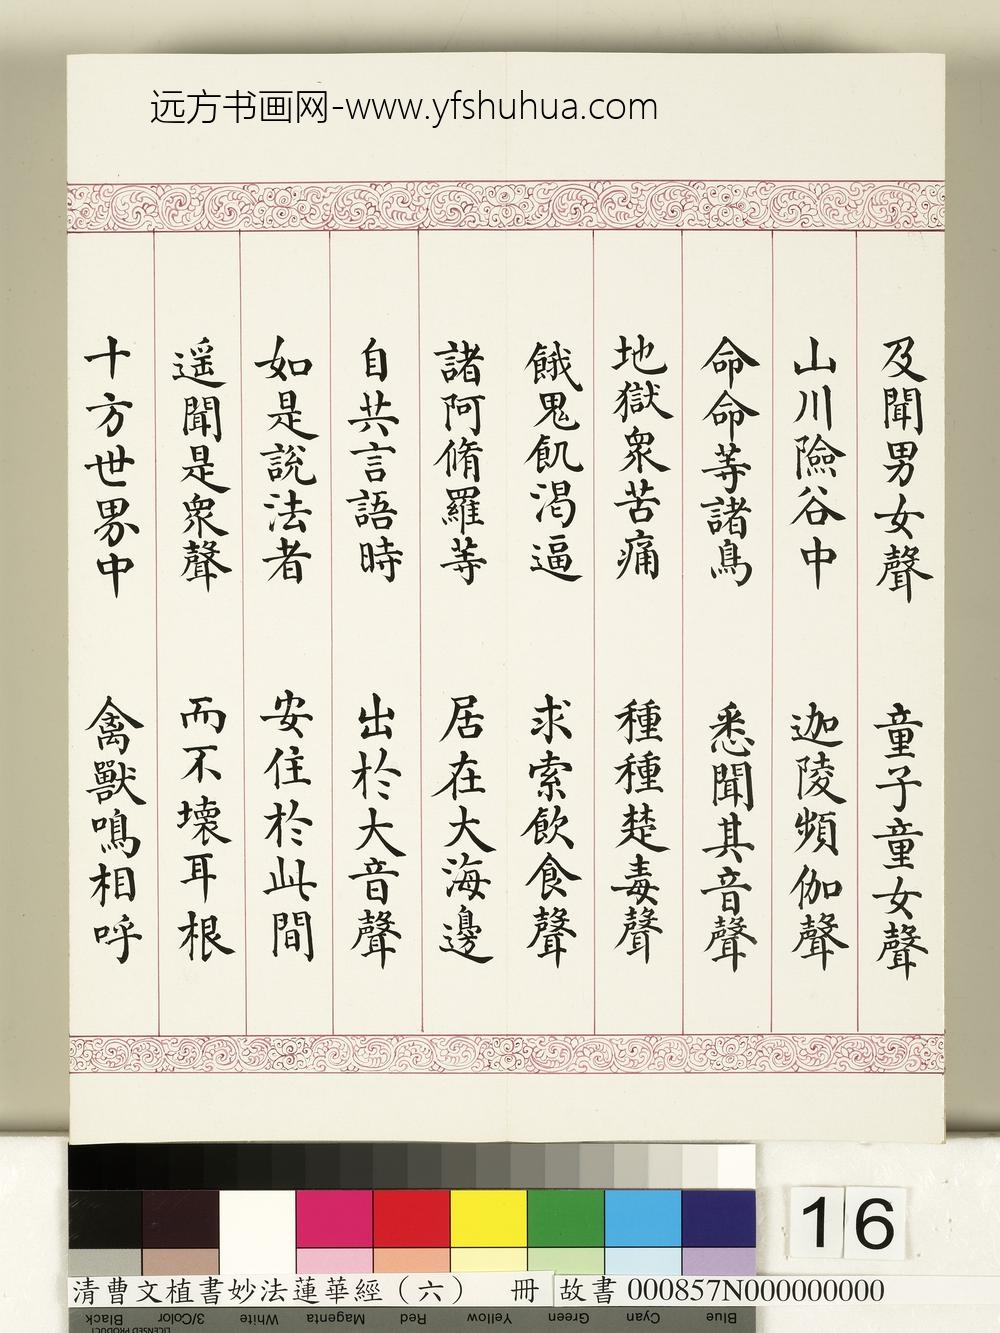 远方书画网-www.yfshuhua.com
及聞男女聲 童子童女聲
山川險谷中 迦陵頻伽聲
命命等諸鳥 悉聞其音聲
地獄衆苦痛 種種楚毒聲
餓鬼飢渴逼 求索飲食聲
諸阿脩羅等 居在大海邊
自共言語時 出於大音聲
如是說法者 安住於此間
遥聞是衆聲 而不壞耳根
十方世界中 禽獸鳴相呼
16
清曹文植書妙法蓮華經（六） 冊 故書 000857N000000000
Black 3/Color White Magenta Red Yellow Green Cyan Blue
LICENSED PRODUCT